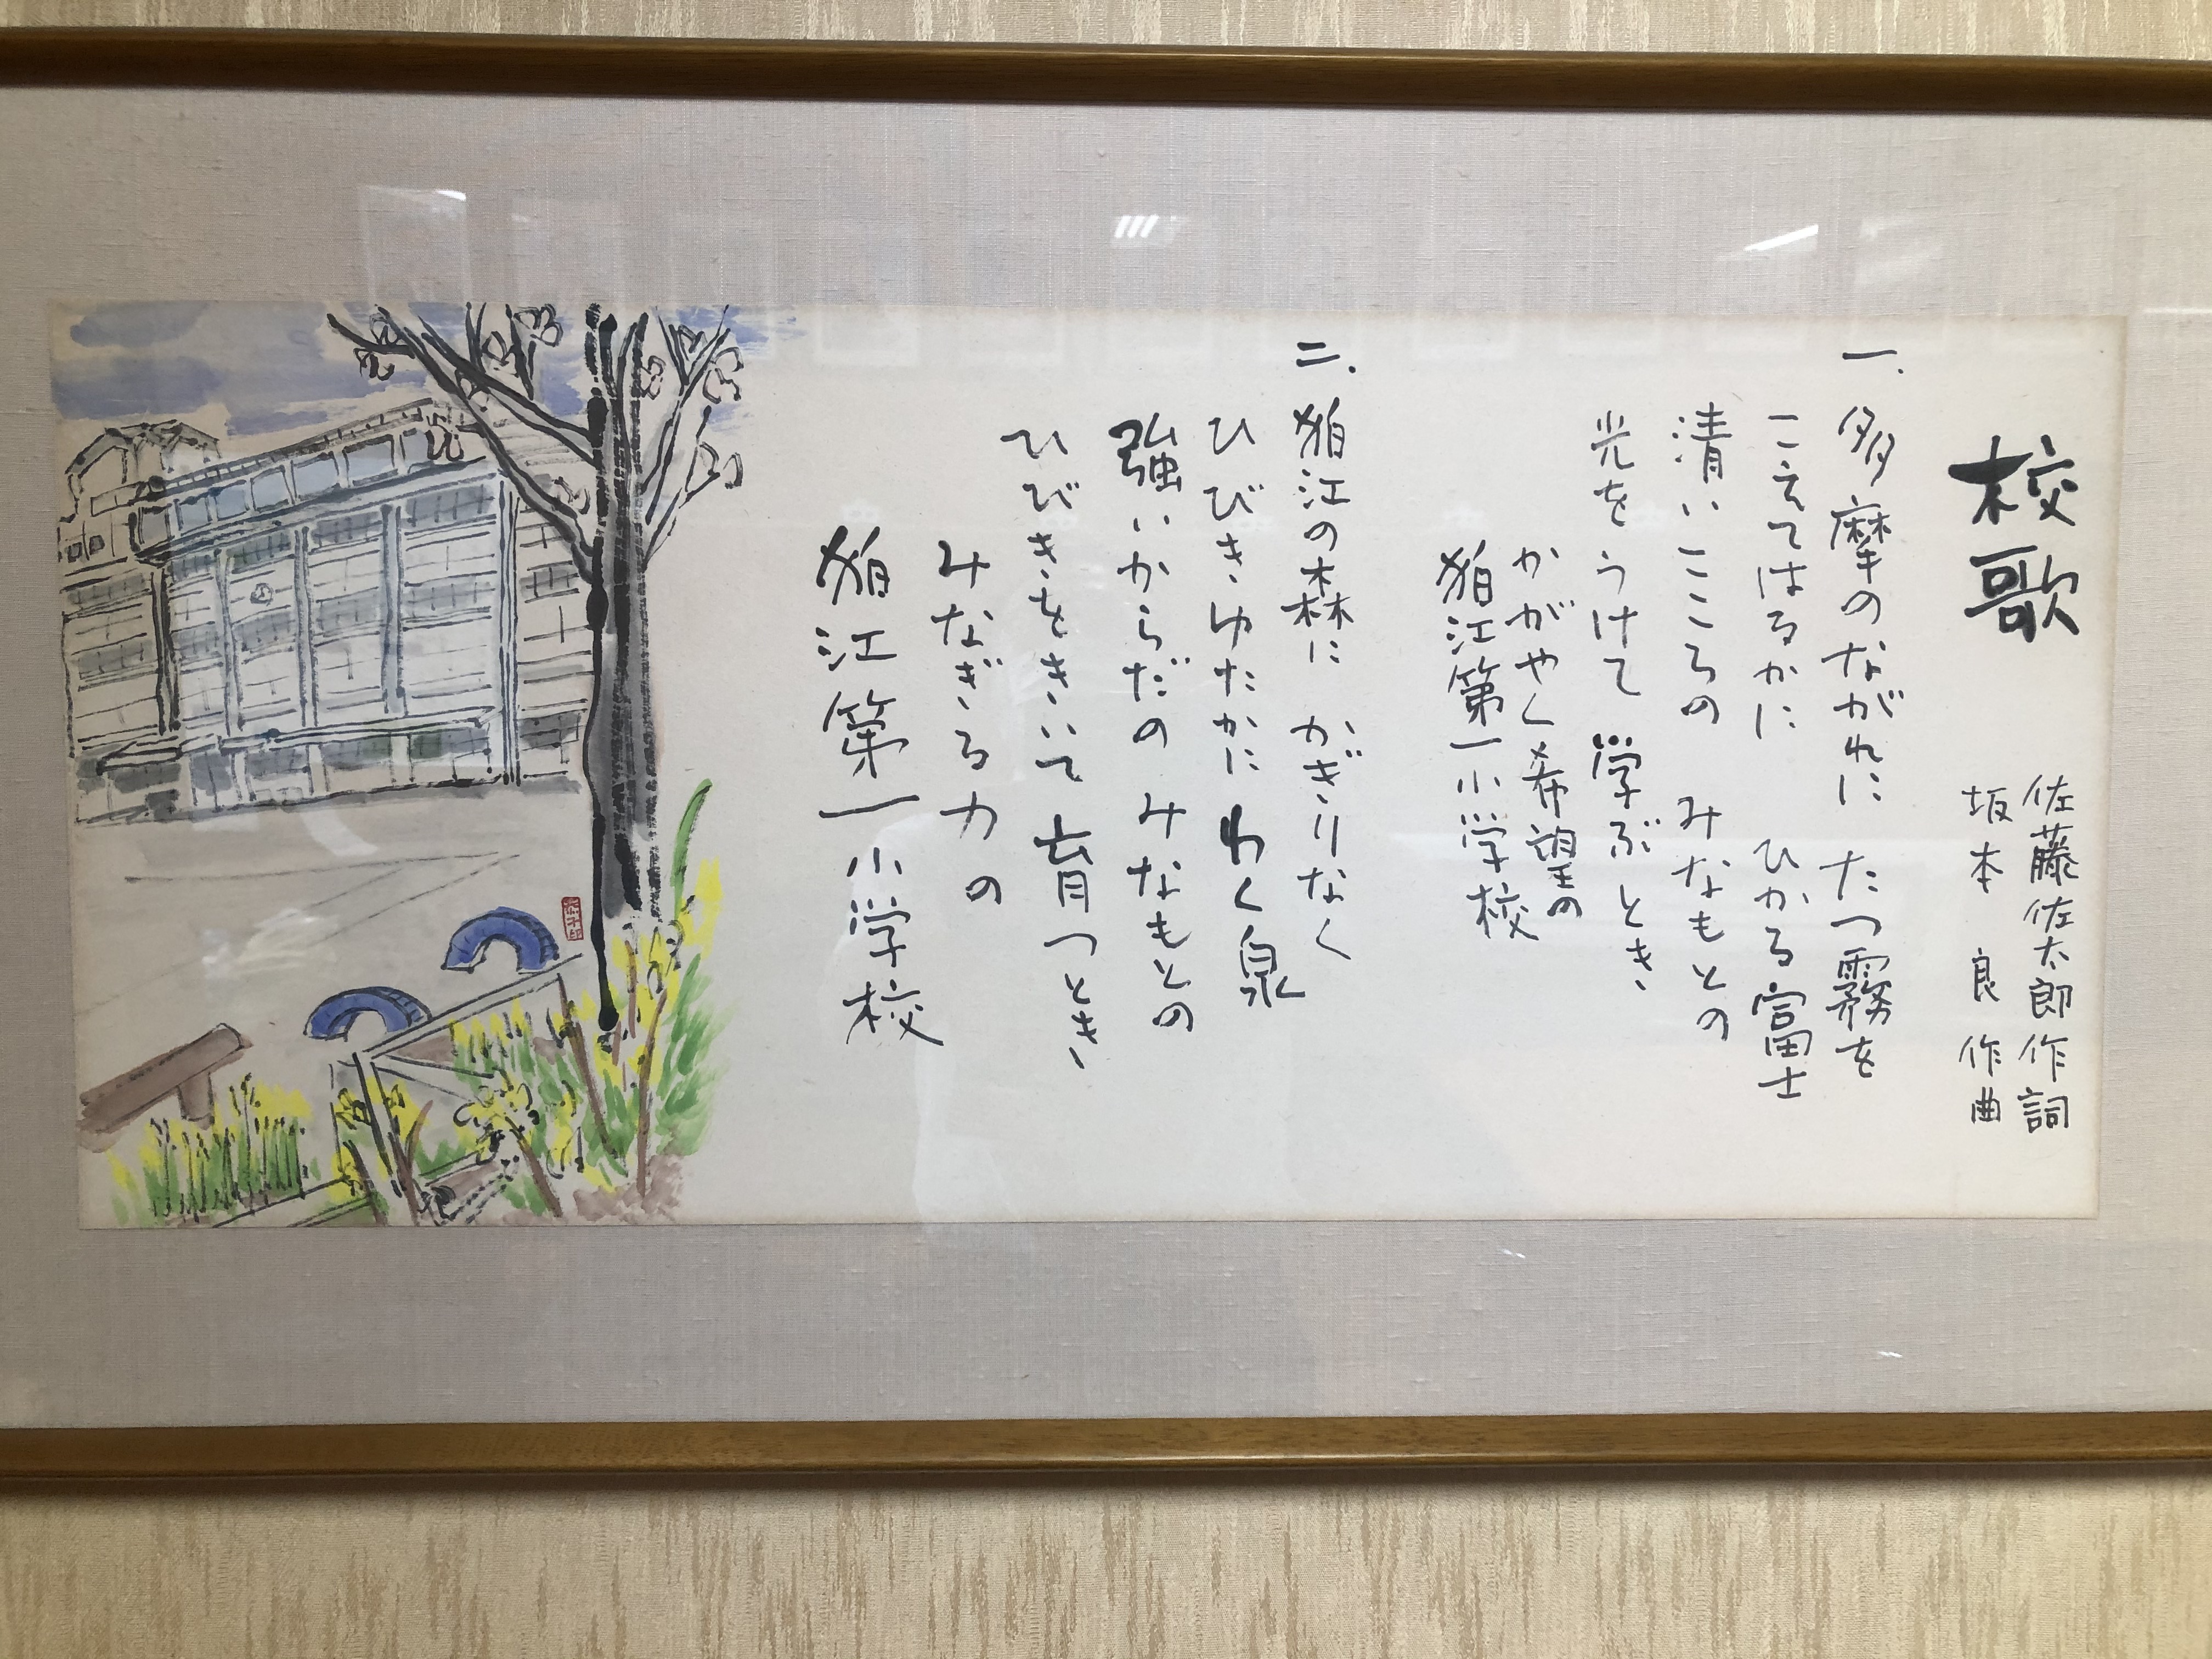 校歌
佐藤佐太郎作詞
坂本良作曲
一、多摩のながれに たつ霧を
こえてはるかに ひかる富士
清いこころの みなもとの
光をうけて 学ぶとき
かがやく希望の
狛江第一小学校
二、狛江の森に かぎりなく
ひびきゆたかに わく泉
強いからだの みなもとの
ひびきをきいて 育つとき
みなぎる力の
狛江第一小学校